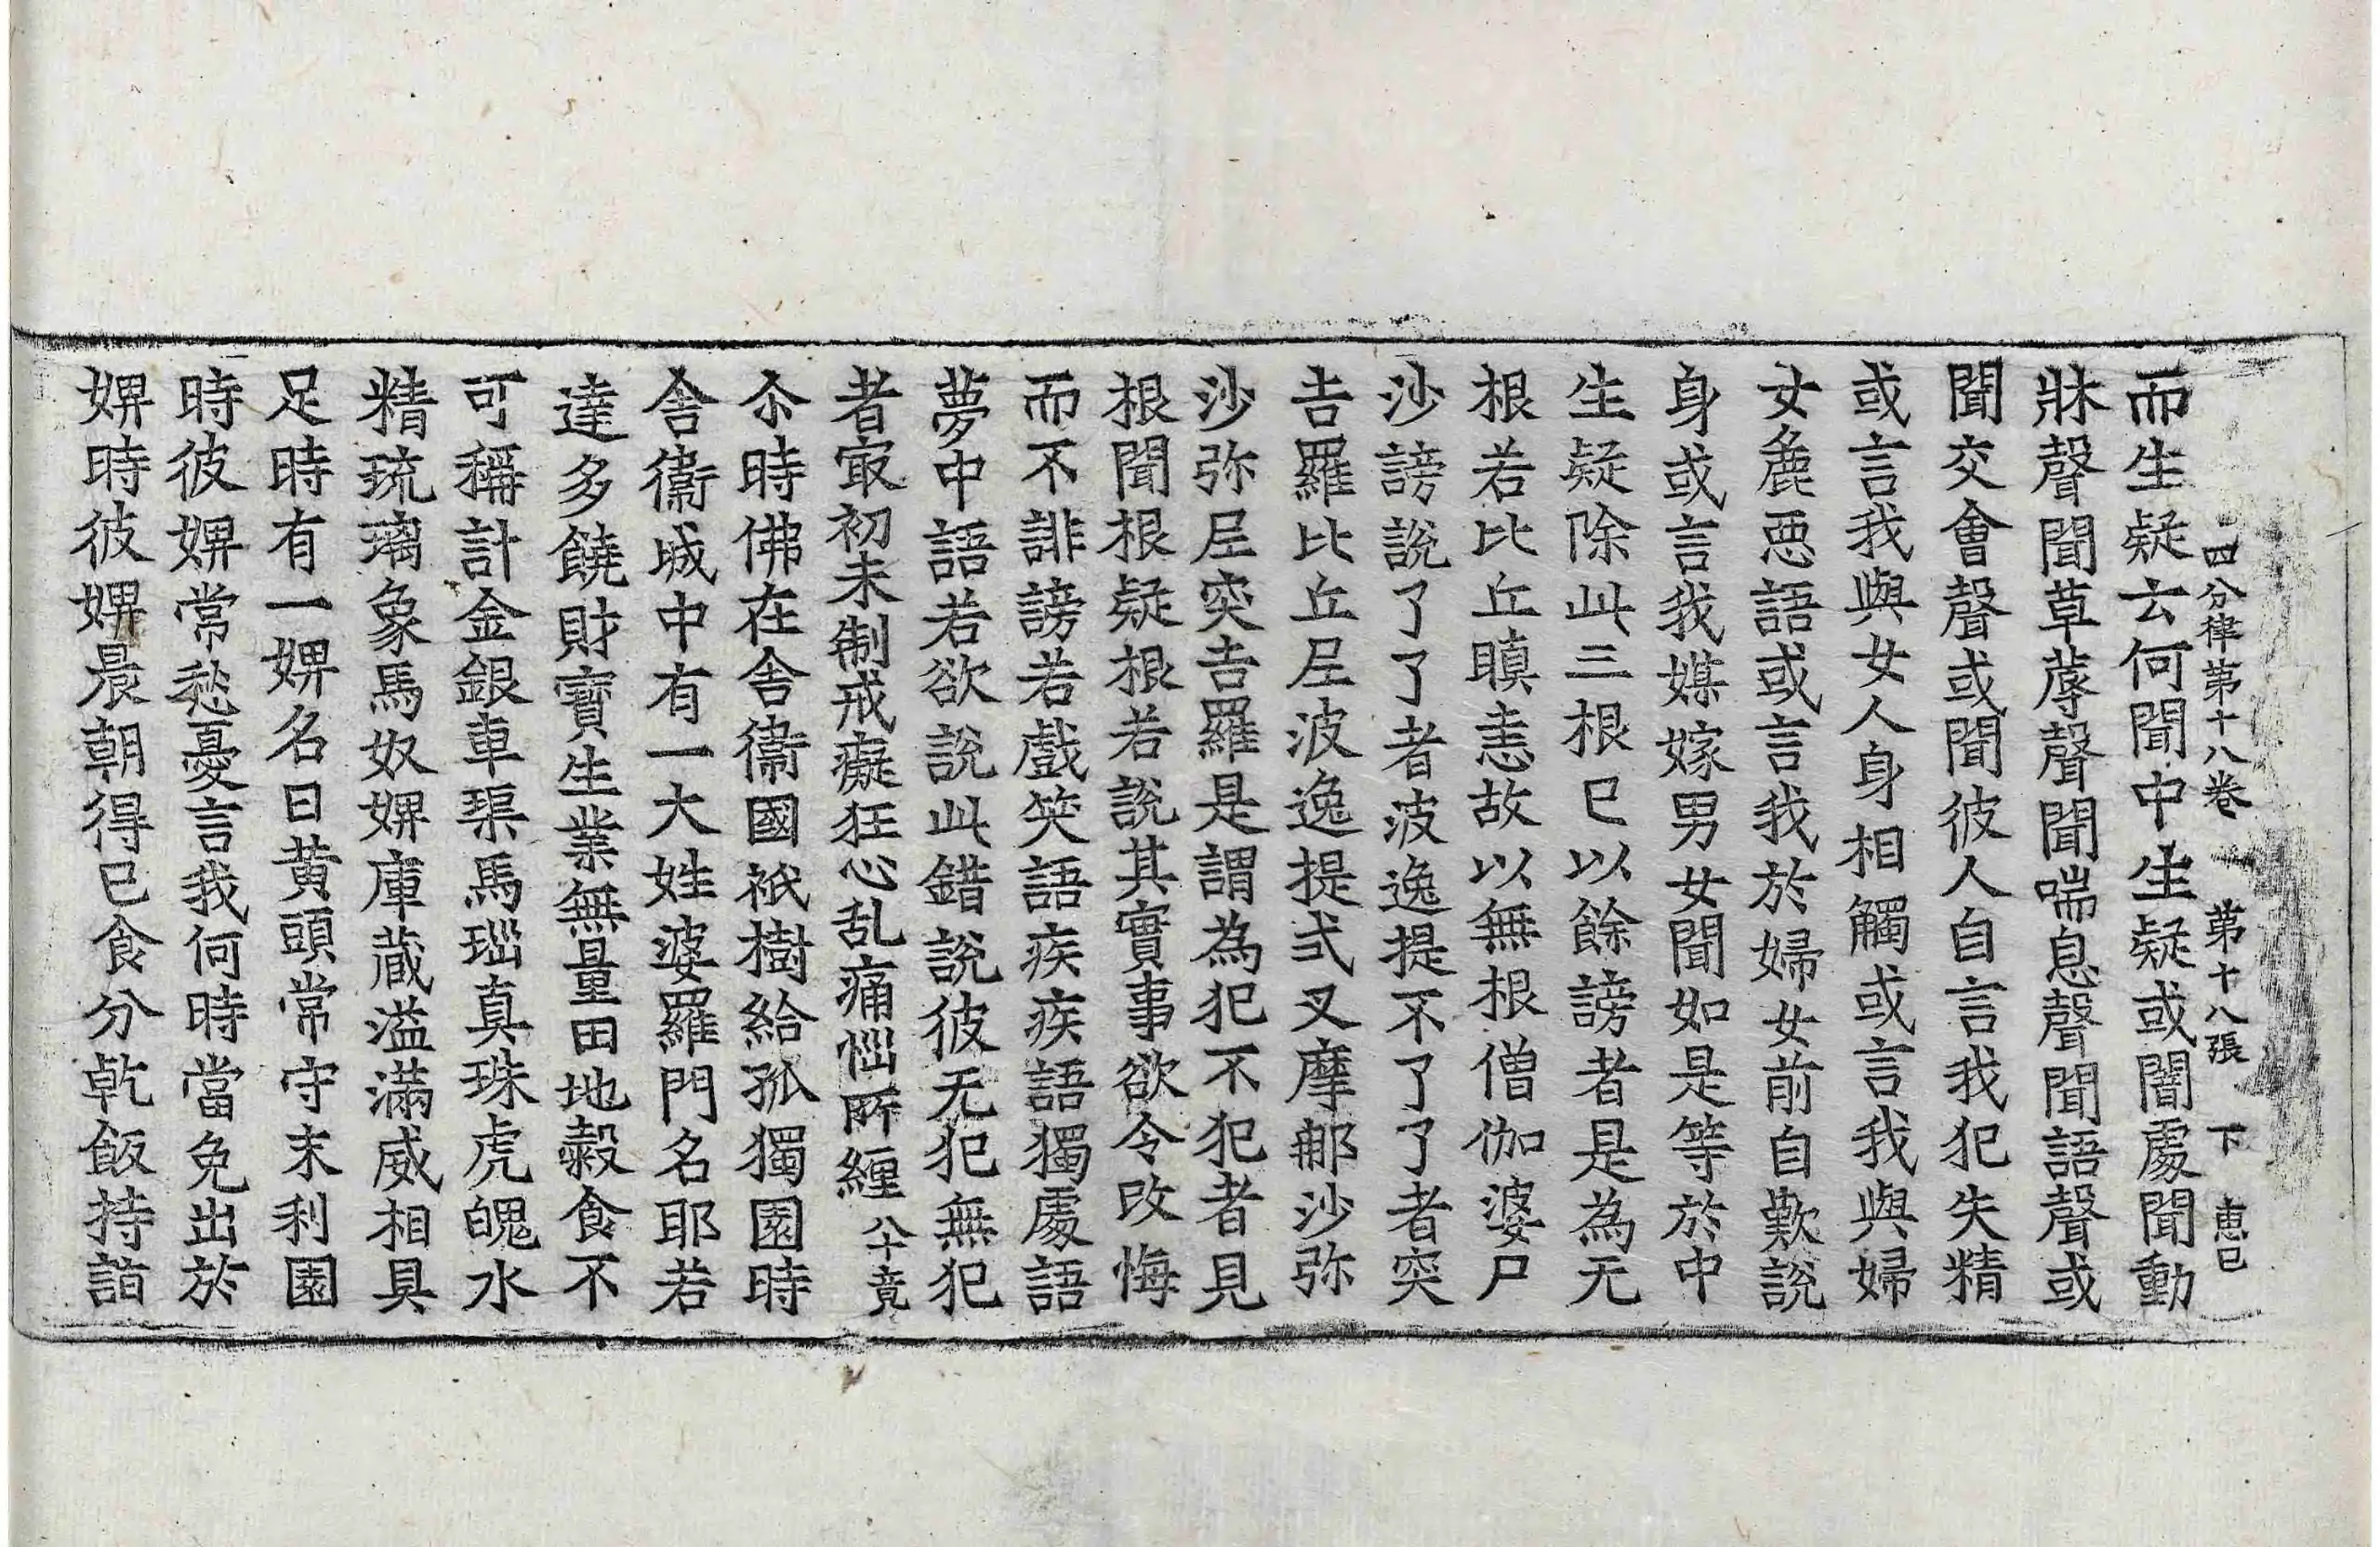 四分律第十八卷 第十八張 下 恵巳
而生疑云何聞中生疑或闇處聞動
牀聲聞草蓐聲聞喘息聲聞語聲或
聞交會聲或聞彼人自言我犯失精
或言我與女人身相觸或言我與婦
女麁惡語或言我於婦女前自歎說
身或言我媒嫁男女聞如是等於中
生疑除此三根已以餘謗者是為无
根若比丘瞋恚故以無根僧伽婆尸
沙謗說了了者波逸提不了了者突
吉羅比丘尼波逸提式叉摩那沙弥
沙弥尼突吉羅是謂為犯不犯者見
根聞根疑根若說其實事欲令改悔
而不誹謗若戲笑語疾疾語獨處語
夢中語若欲說此錯說彼无犯無犯
者㝡初未制戒癡狂心乱痛惱所纏 八十竟
尒時佛在舍衞國祇樹給孤獨園時
舍衞城中有一大姓婆羅門名耶若
達多饒財寶生業無量田地穀食不
可稱計金銀車璖馬瑙真珠虎魄水
精琉璃象馬奴婢庫蔵溢滿威相具
足時有一婢名曰黃頭常守末利園
時彼婢常愁憂言我何時當免出於
婢時彼婢晨朝得已食分乾飯持詣